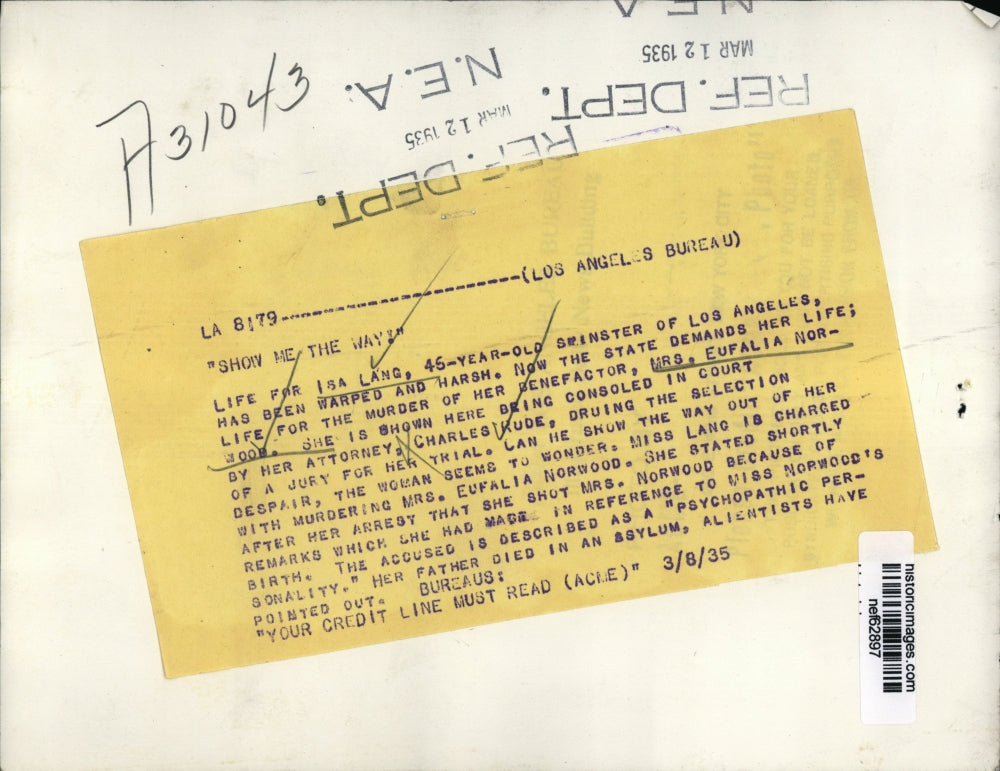 N.E.A.
MAR 12 1935
REF. DEPT.
N.E.A.
MAR 12 1935
REF. DEPT.
A31043
LA 8179-----------------------(LOS ANGELES BUREAU)
"SHOW ME THE WAY!"
LIFE FOR ISA LANG, 45-YEAR-OLD SPINSTER OF LOS ANGELES,
HAS BEEN WARPED AND HARSH. NOW THE STATE DEMANDS HER LIFE;
LIFE FOR THE MURDER OF HER BENEFACTOR, MRS. EUFALIA NOR-
WOOD. SHE IS SHOWN HERE BEING CONSOLED IN COURT
BY HER ATTORNEY, CHARLES RUDE, DRUING THE SELECTION
OF A JURY FOR HER TRIAL. CAN HE SHOW THE WAY OUT OF HER
DESPAIR, THE WOMAN SEEMS TO WONDER. MISS LANG IS CHARGED
WITH MURDERING MRS. EUFALIA NORWOOD. SHE STATED SHORTLY
AFTER HER ARREST THAT SHE SHOT MRS. NORWOOD BECAUSE OF
REMARKS WHICH SHE HAD MADE IN REFERENCE TO MISS NORWOOD'S
BIRTH. THE ACCUSED IS DESCRIBED AS A "PSYCHOPATHIC PER-
SONALITY." HER FATHER DIED IN AN ASYLUM, ALIENTISTS HAVE
POINTED OUT. BUREAUS:
"YOUR CREDIT LINE MUST READ (ACME)" 3/8/35
historicimages.com
nef62897